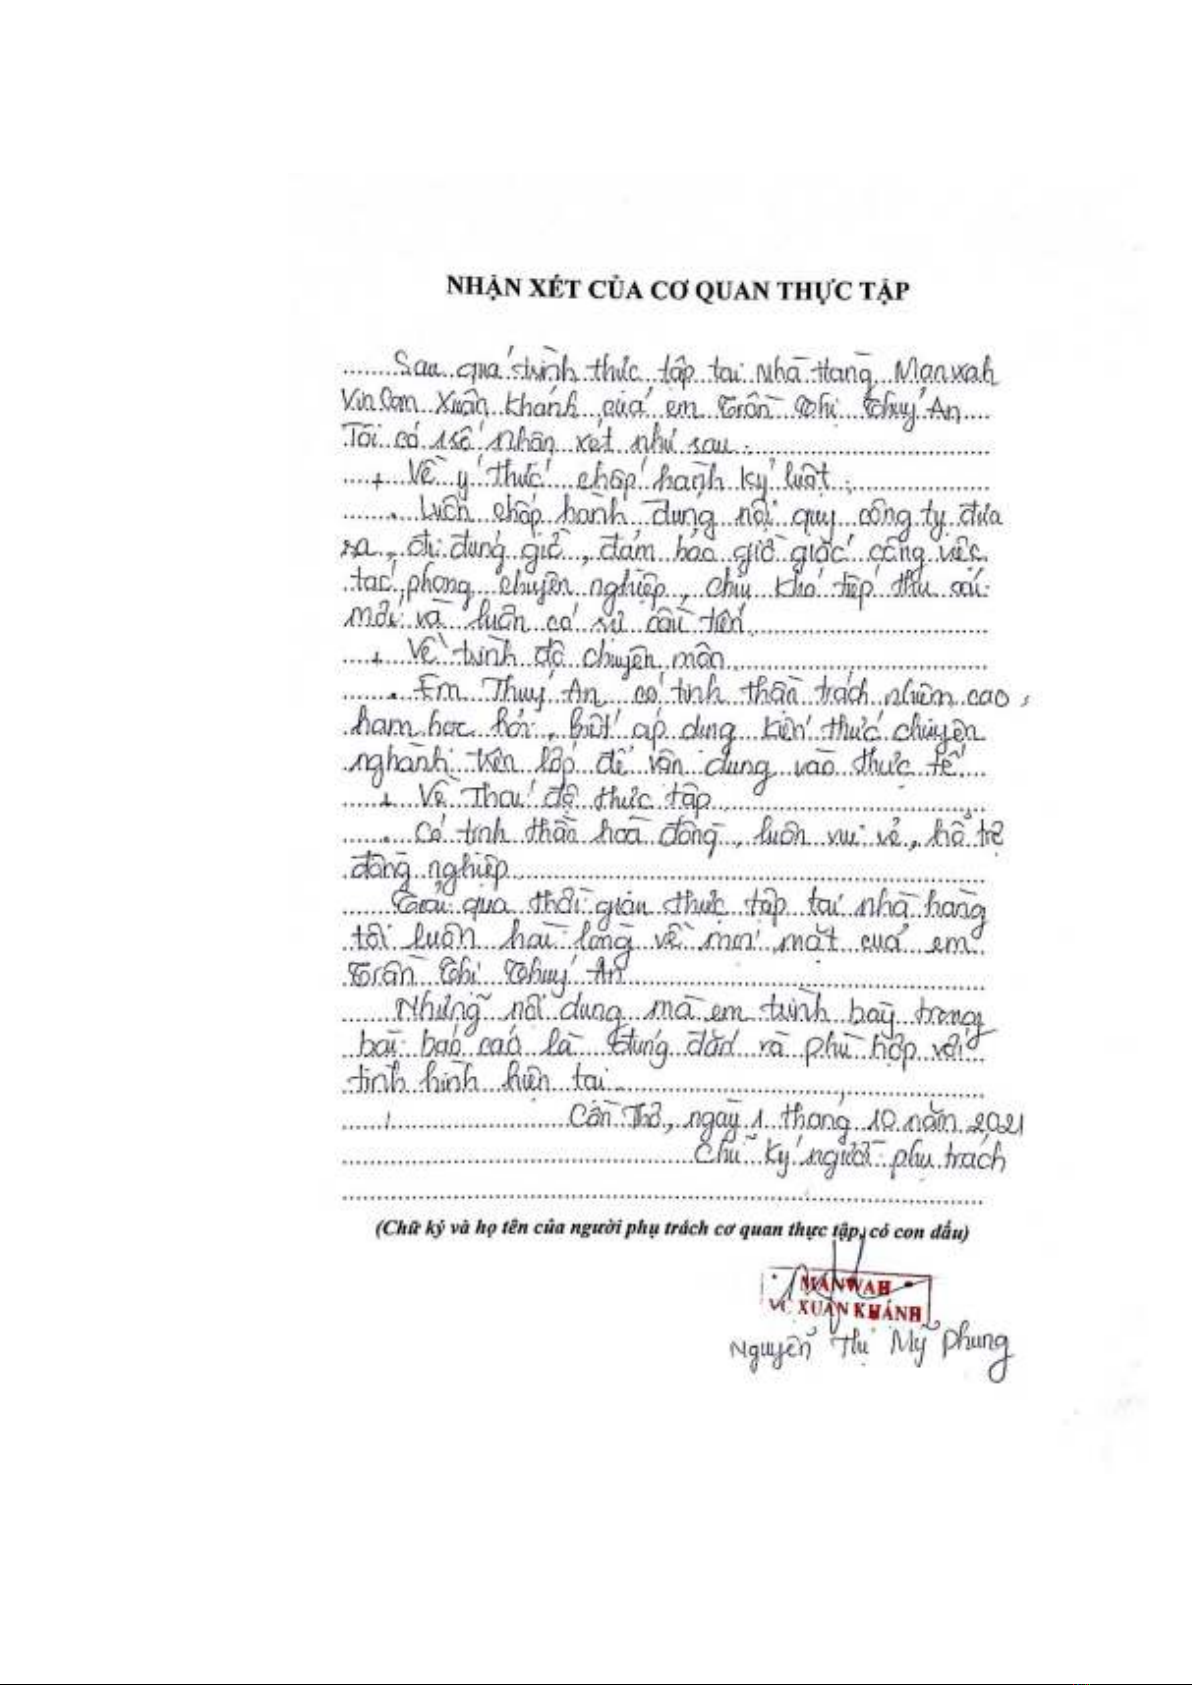 NHẬN XÉT CỦA CƠ QUAN THỰC TẬP
Sau quá trình thực tập tại Nhà Hàng Manwah
VinCom Xuân Khánh của em Trần Thị Thuý An
Tôi có 1 số nhận xét như sau:
+ Về ý thức chấp hành kỷ luật:
. Luôn chấp hành đúng nội quy công ty đưa
ra, đi đúng giờ, đảm bảo giờ giấc công việc
tác phong chuyên nghiệp, chịu khó tiếp thu cái
mới và luôn có sự cầu tiến
+ Về trình độ chuyên môn
. Em Thuý An có tinh thần trách nhiệm cao,
ham học hỏi, biết áp dụng kiến thức chuyên
nghành trên lớp để vận dụng vào thực tế
+ Về Thái độ thực tập
. Có tinh thần hoà đồng, luôn vui vẻ, hổ trợ
đồng nghiệp
Trải qua thời gian thực tập tại nhà hàng
tôi luôn hài lòng về mọi mặt của em
Trần Thị Thuý An
Những nội dung mà em trình bày trong
bài báo cáo là đúng đắn và phù hợp với
tình hình hiện tại
Cần Thơ, ngày 1 tháng 10 năm 2021
Chữ ký người phụ trách
(Chữ ký và họ tên của người phụ trách cơ quan thực tập, có con dấu)
MANWAH
VC XUÂN KHÁNH
Nguyễn Thị Mỹ Phung